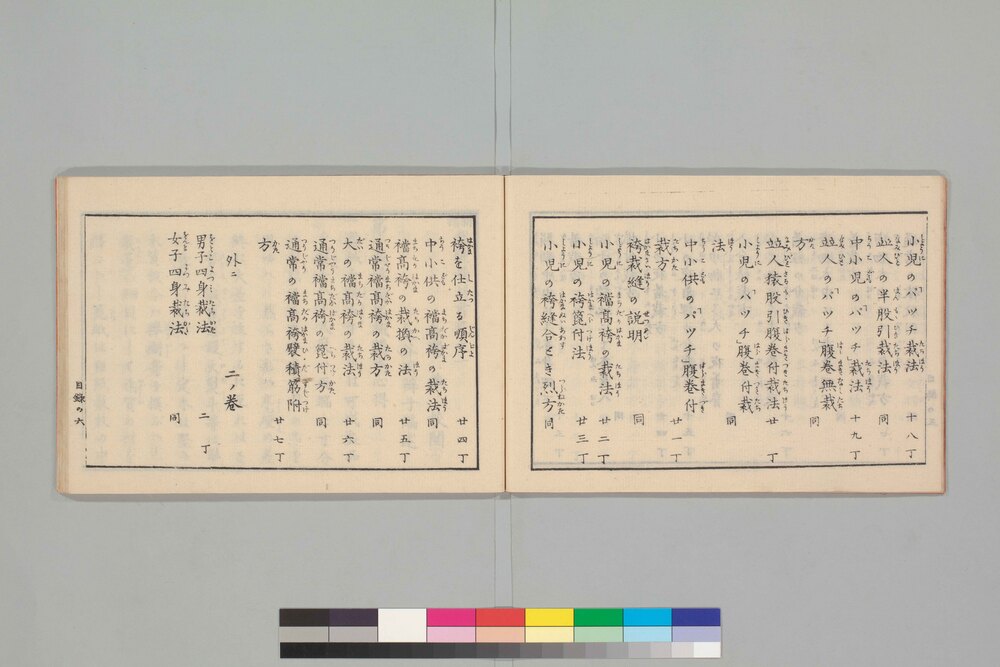 小児のパツチ裁法 十八丁
並人の半股引裁法 同
中小児の「パツチ」裁法 十九丁
並人の「パツチ」腹巻無裁
方 同
並人猿股引腹巻付裁法 廿丁
小児の「パツチ」腹巻付裁
法 同
中小供の「パツチ」腹巻付
裁方 廿一丁
袴裁縫の説明 同
小児の襠高袴の裁法 廿二丁
小児の袴箆付法 廿三丁
小児の袴縫合とき烈方 同
袴を仕立る順序 廿四丁
中小供の襠高袴の裁法 同
襠高袴の裁損の法 廿五丁
通常襠高袴の裁方 同
大の襠高袴の裁法 廿六丁
通常襠高袴の箆付方 同
通常の襠高袴襞積筋附
方 廿七丁
外ニ 二ノ巻
男子四身裁法 二丁
女子四身裁法 同
目録の六